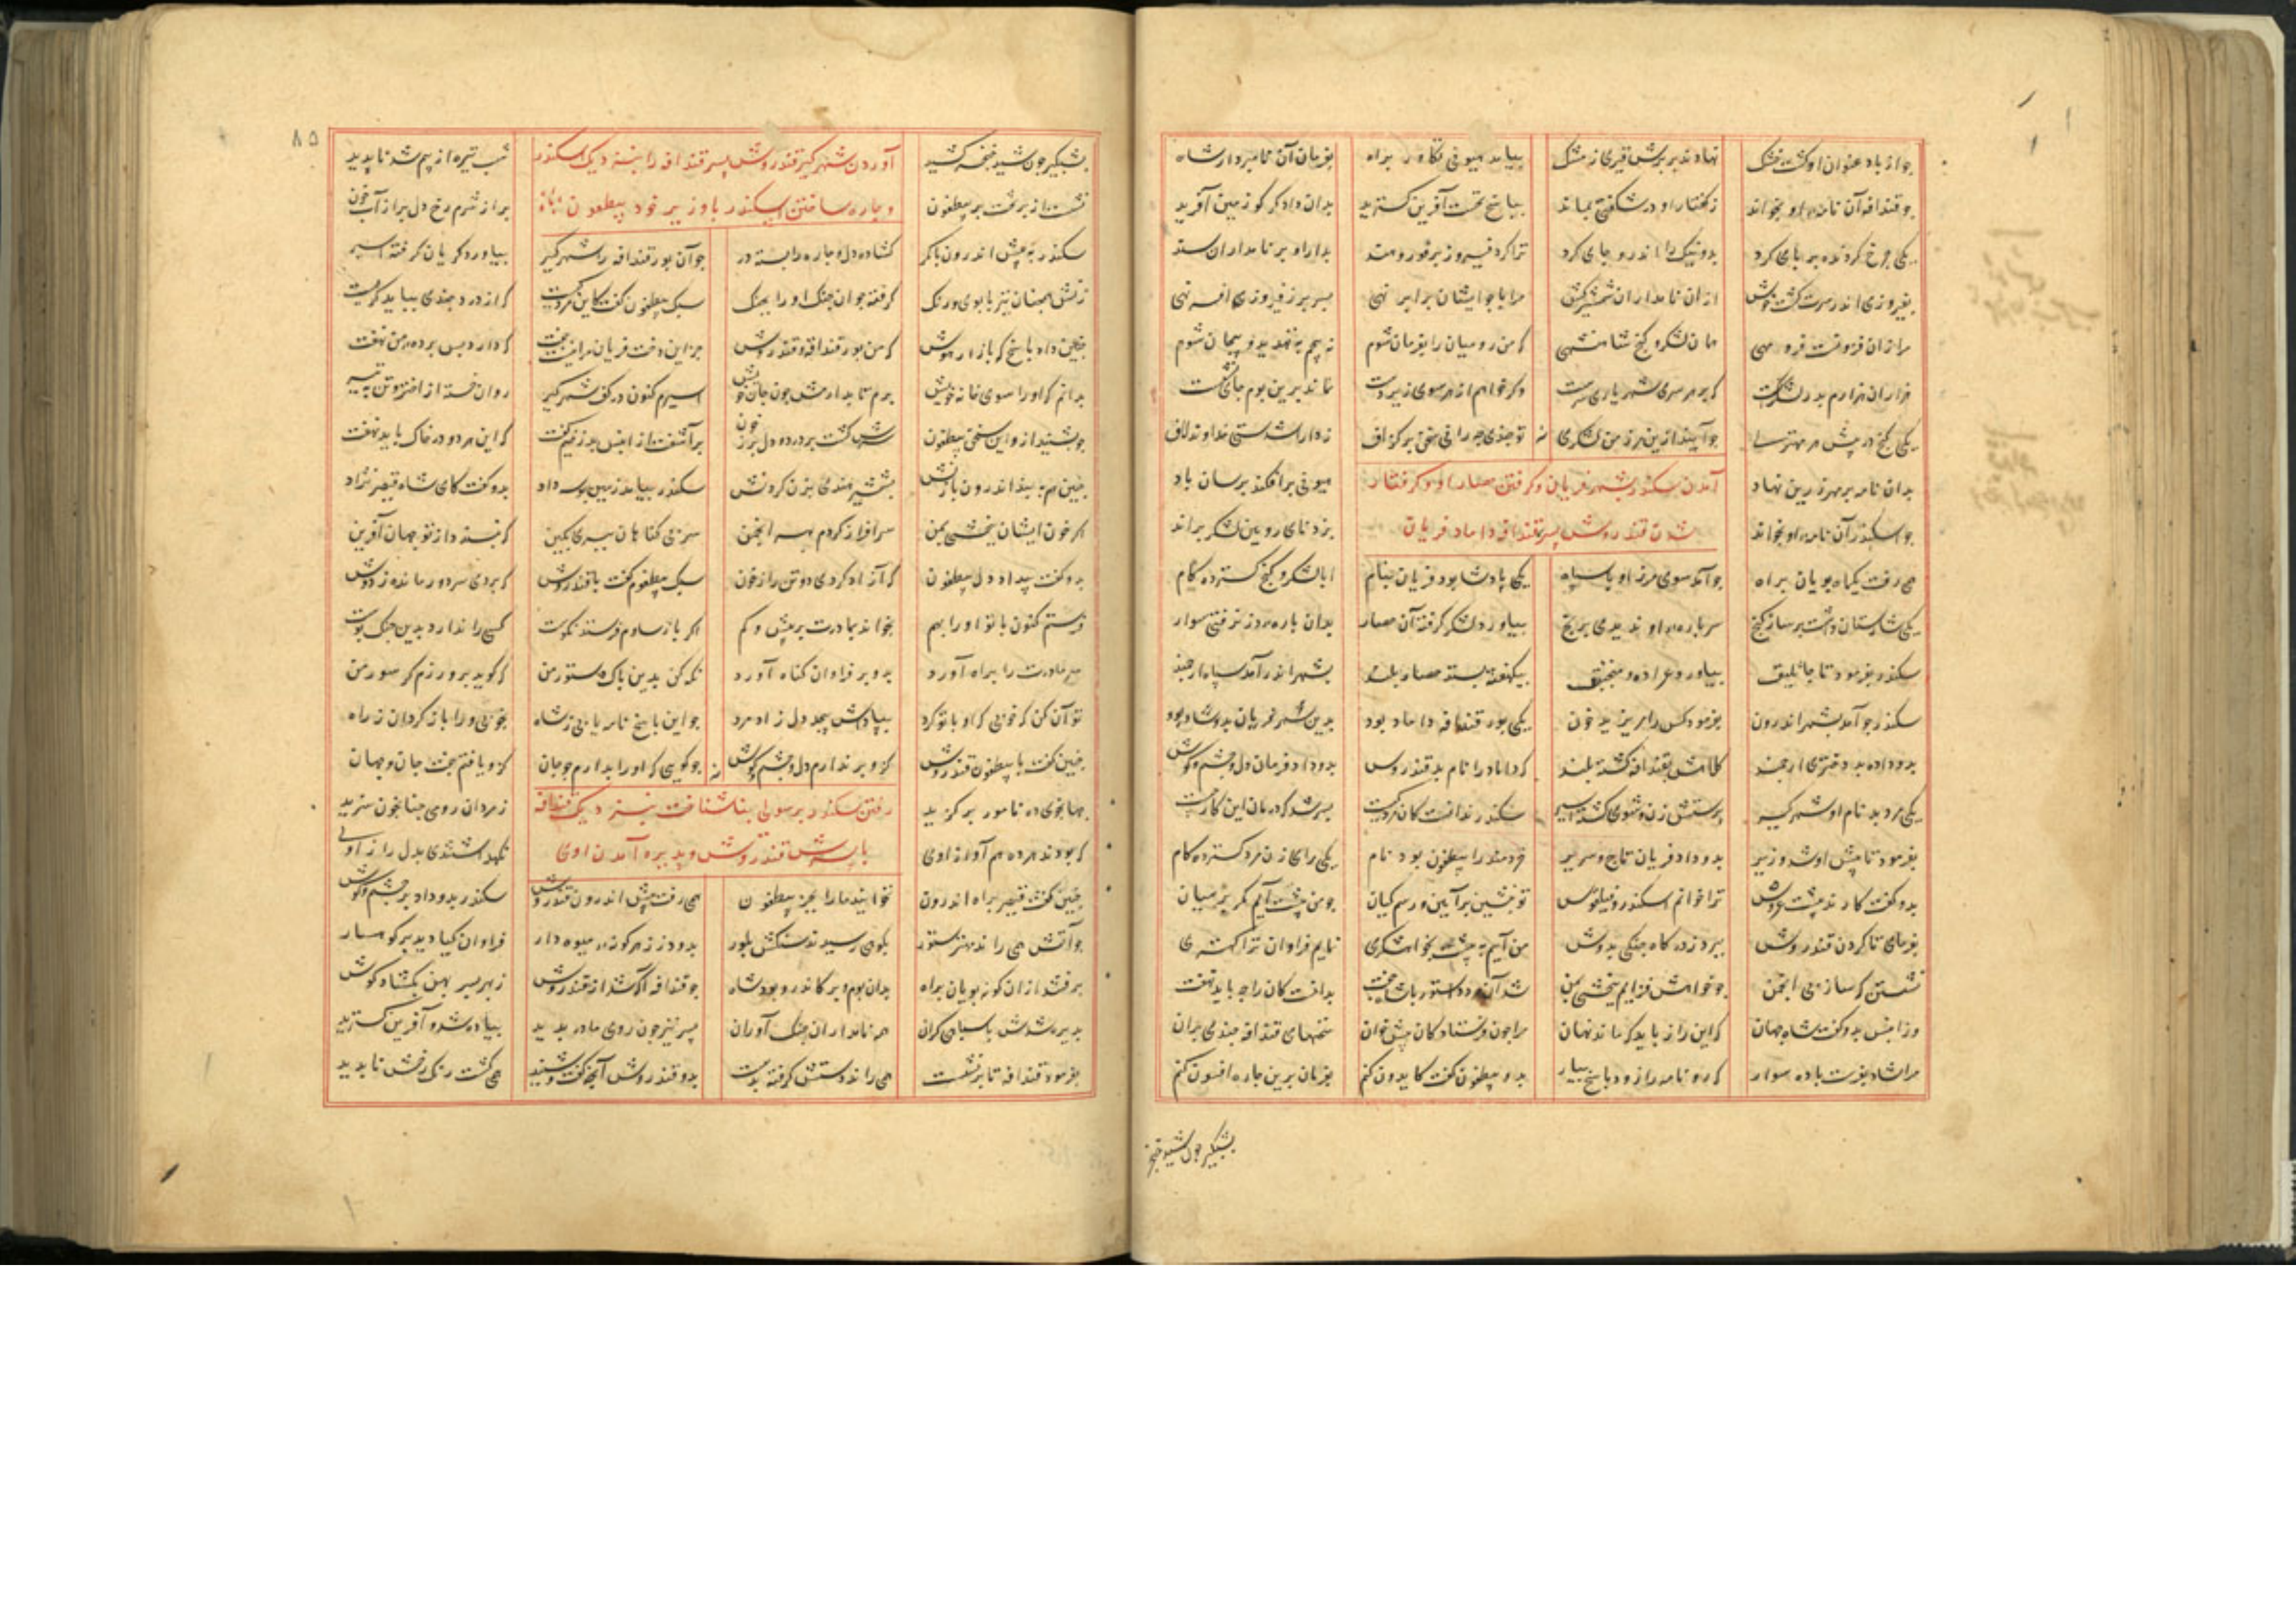 چو از باد عنوان او کشت خشک نهادند بر برش قیری ز مشک بیامد هیونی تکاور براه بفرمان آن نامبردار شاه
چو قیدافه آن نامه او بخواند ز کفتار او در شکفتی بماند بپاسخ نخست آفرین کسترید بدان دادکر کو زمین آفرید
یکی چرخ کردنده بر پای کرد بدو نیک را اندرو جای کرد ترا کرد فیروز بر فور هند بدارا و بر نامداران سند
بفیروزی اندر سرت کشت خوش از آن نامداران شمشیرکش مرا با چو ایشان برابر نهی بسر بر ز فیروزی افسر نهی
مرا زان فزونست فر و مهی همان لشکر و کنج شاهنشهی که من رومیان را بفرمان شوم بترسم به تهدید و پیچان شوم
هزاران هزارم بدر لشکرست که بر هر سری شهریاری سرست و کر خوانم از هر سوی زیردست نماند برین بوم جای نشست
یکی کنج در پیش هر مهتری چو آیند ازین مرز من لشکری تو چندین چه رانی سخن بر کزاف ز دارا شدستی خداوند لاف
بدان نامه بر مهر زرین نهاد آمدن سکندر بشهر فریان و کرفتن حصار او و کرفتار هیونی برافکند برسان باد
چو اسکندر آن نامه او بخواند شدن قندروش پسر قندافه داماد فریان بزد نای رویین لشکر براند
همی رفت یکماه پویان براه چو آمد سوی مرز او با سپاه یکی پادشا بود فریان بنام ابا لشکر و کنج کسترده کام
یکی شارستان داشت بر ساز کنج سر باره او ندیدی برنج بیاورد لشکر کرفت آن حصار بدان باره دز نرفتی سوار
سکندر بفرمود تا جاثلیق بیاورد عراده و منجنیق بیکهفته بستد حصار بلند بشهر اندر آمد سپاه ارجمند
سکندر چو آمد بشهر اندرون بفرمود کس را نریزید خون یکی پور قندافه داماد بود بدین شهر فریان بدو شاد بود
بدو داده بد دختری ارجمند کلاهش بقندافه کشته بلند که داماد را نام بد قندروس بدو داد فرمان دل و چشم و کوش
یکی مرد بد نام او شهرکیر بدستش زن و شوی کشته اسیر سکندر بدانست کان مرد کیست بپرسید که درمان این کار چیست
بفرمود تا پیش او شد وزیر بدو داد فریان تاج و سریر خردمند را پیطقون بود نام یکی رای زن مرد کسترده کام
بدو کفت کاید به پیشت عروس ترا خوانم اسکندر فیلقوس تو بنشین بر آیین و رسم کیان چو من پیشت آیم کمر بر میان
بفرمای تا کردن قندروش ببرد زند کاه جنکی بدوش من آیم به پیشت بخواهشکری نمایم فراوان ترا کهتری
نشستن که سازی بی انجمن چو خواهش فزایم ببخشی بمن شد آن مرد دستور با شاه جفت بدانست کان راز باید نهفت
وزان پس بدو کفت شاه جهان که این راز باید که ماند نهان مرا چون فرستادکان پیش خوان سخنهای قندافه چندی بران
مرا شاد بفرست با ده سوار که رو نامه را زود پاسخ بیار بدو پیطقون کفت کایدون کنم بفرمان برین چاره افسون کنم
بشبکیر چون شید خنجر
۸۵
بشبکیر چون شید خنجر کشید آوردن شهرکیر قندروش پسر قندافه را بنزدیک اسکندر شب تیره از بیم شد ناپدید
نشست از بر تخت بر پیطقون و چاره ساختن اسکندر با وزیر خود پیطقون پر از شرم رخ دل پر از آب خون
سکندر به پیش اندرون با کمر کشاده دل و چاره را بسته در چو آن پور قندافه را شهرکیر بیاورد کریان کرفته اسیر
زنش همچنان نیز با بوی و رنک کرفته جوان چنک او را بچنک سبک پیطقون کفت کاین مرد کیست که از درد چندی بباید کریست
چنین داد پاسخ که باز آر هوش که من پور قندافه قندروش جز این دخت فریان مرا نیست جفت که دارد پس پرده من نهفت
بدانم که او را سوی خانه خویش برم تا بدارمش چون جان خویش اسیرم کنون در کف شهرکیر روان خسته از اختر و تن به تیر
چو بشنید ازو این سخن پیطقون سرش کشت پر درد و دل پر ز خون برآشفت ازان پس بدژخیم کفت که این هر دو در خاک باید نهفت
چنین هم به بند اندرون با زنش بشمشیر هندی بزن کردنش سکندر بیامد زمین بوسه داد بدو کفت کای شاه قیصر نژاد
اکر خون ایشان ببخشی بمن سرافراز کردم بهر انجمن سر بی کناهان ببری بکین که نپسندد از تو جهان آفرین
بدو کفت بیداد دل پیطقون که آزاد کردی دو تن را ز خون سبک پیطقون کفت با قندروش که بردی سر دور مانده ز دوش
فرستم کنون با تو او را بهم بخواند بمادرت بر بیش و کم اکر باز ساوم فرستد نکوست کسی را ندارد بدین جنک پوست
بدو بر فراوان کناه آورد نکه کن بدین پاک دستور من که کوید بدو رزم کر سور من
تو آن کن ز خوبی که او با تو کرد بپاداش پیچد دل زاد مرد چو این پاسخ نامه یابی ز شاه بخوبی ورا باز کردان ز راه
چنین کفت با پیطقون قندروش کزو بر ندارم دل و چشم و کوش چکونه که او را ندارم چو جان کزو یافتم جفت جان و جهان
جهانجوی ده نامور برکزید رفتن سکندر برسولی بناشناخت بنزدیک قندافه ز مردان رومی چنانچون سزید
که بودند همره هم آواز اوی با پسرش قندروش و پذیره آمدن اوی نکهداشتندی بدل راز اوی
چنین کفت قیصر براه اندرون نخوانید ما را بجز پیطقون همی رفت پیش اندرون قندروش سکندر بدو داد بر چشم و کوش
چو آتش همی راند مهتر ستور بکوهی رسیدند سنکش بلور بدو در ز هر کونه میوه دار فراوان کیا دید بر کوهسار
برفتند ازان کونه پویان براه بدان بوم و بر کاندرو بود شاه چو قندافه آکه شد از قندروش
پذیره شدش با سپاهی کران همه نامداران جنک آوران پسر نیز چون روی مادر بدید پیاده شد و آفرین کسترید
بفرمود قندافه تا برنشست همی راند دستش کرفته بدست بدو قندروش آنچه کفت و شنید همی کشت رنک رخش ناپدید